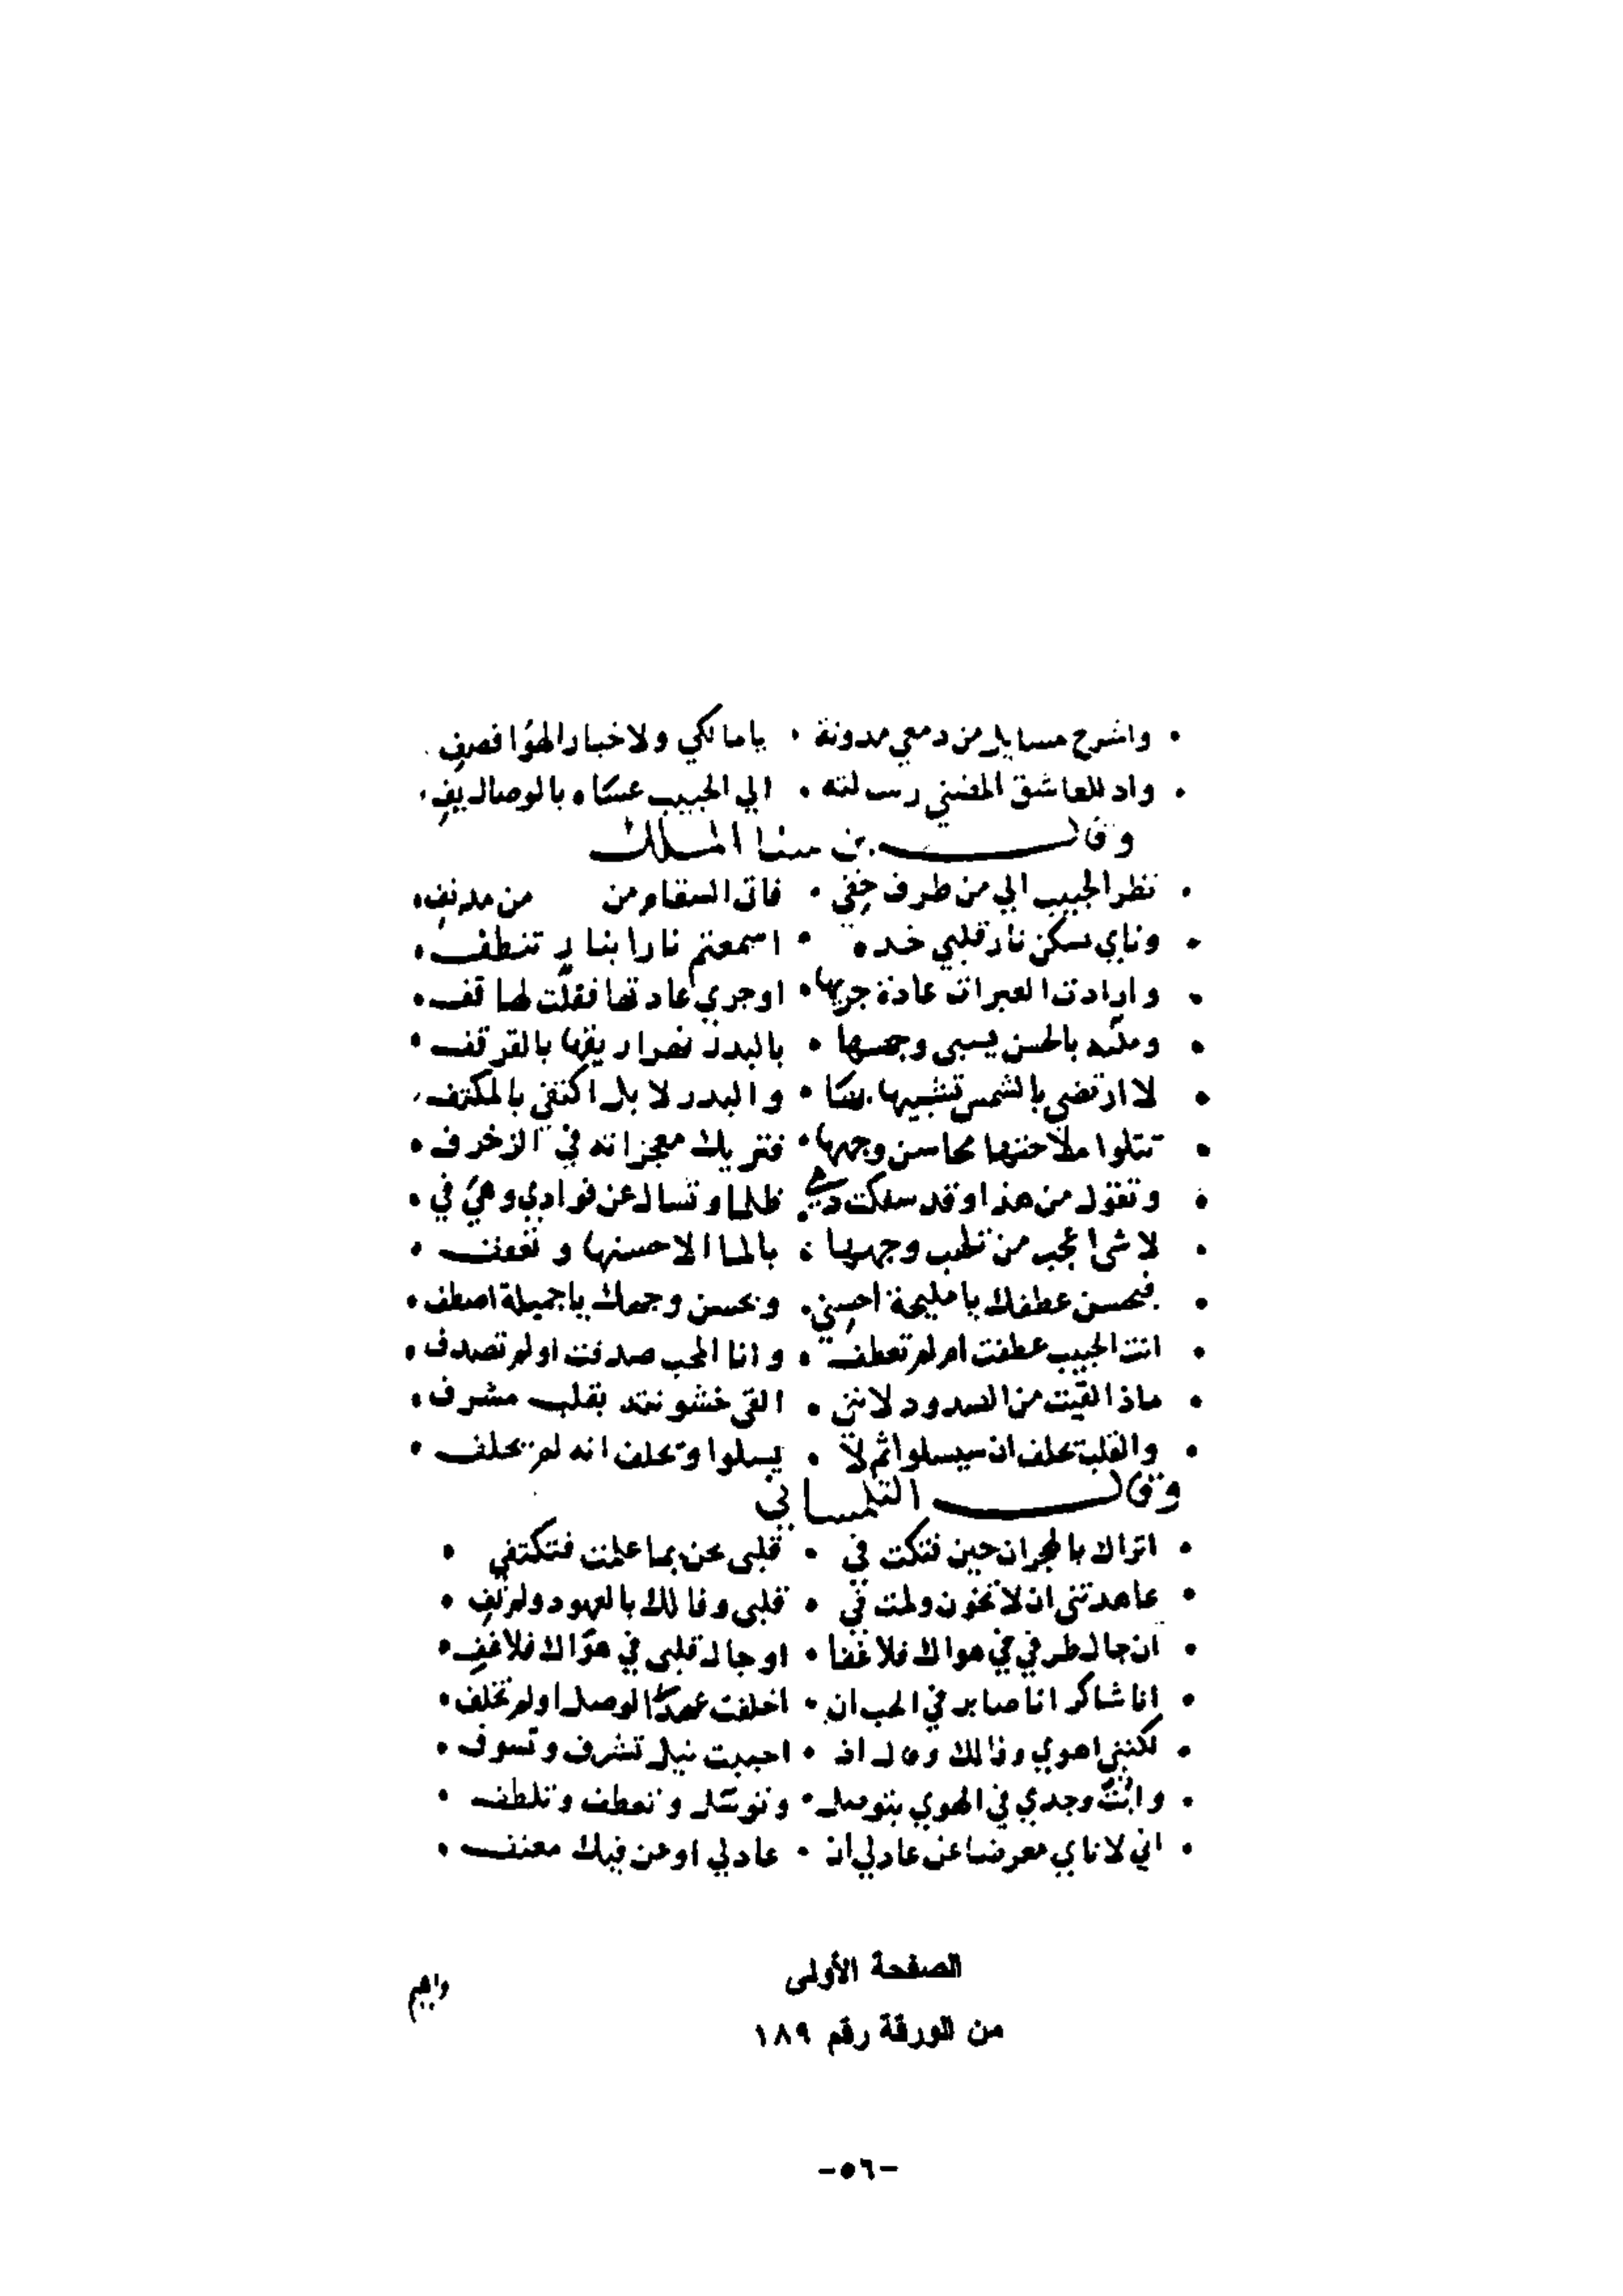 • واشرح مسايل من دمعي مدونة • يا مالكي ولاخبار الهوا فصف
• واد للعاشق المضني رسالته • الي الحبيب عساه بالوصال يف •
وقال بن سنا الملك
• نظر الحبيب الي من طرف خفي • فاتي السقام من من مدنف •
• وناي يسكن نار قلبي خده • اسمعتم نارا بنار تنطف •
• وارادت العبرات عادة جريها • اوجري عادتها فقلت لها قف •
• بالحسن يسبي وجهها • بالبدر ريقها بالقرقف •
• لا ارتضي بالشمس تشبيها بها • والبدر لا بل اكتفي بالمكتف •
• تتلوا ملاحتها محاسن وجهها • فتريك معجزاته في الزخرف •
• وتقول من هذا وقد سفكت دمي • ظلما وتسال عن فوادي وهي في •
• لا شي اعجب من وجهها • بالما الا حسنها وتعفف •
• فبحسن عطفك يا مليحة احسني • وبحسن وجهك يا جميلة اصطف •
• انت الحبيب عطفت ام لم تعطف • وانا المحب صدفت او لم تصدف •
• ماذا لقيت من الصدود لانني • القي خشونته بقلب مشرف •
• والقلب يحلف ان سيسلوا ثم لا • يسلوا ويحلف انه لم يحلف •
وقال التلمساني
• اتراك بالهجران حين فتكت في • قلبي بما علمت فتكتفي •
• عاهدتني ان لا تخون ولمت في • قلبي وفا لك بالعهود ولم تف •
• ان جال طرفي في هواك فلا غفا • او حال قلبي في هواك فلا عف •
• انا شاكر انا صابر في الحب ان • اخلفت عهد الوصل او لم تخلف •
• لكنني اهوي وفا لك ان • احببت نيل تشرف وتسوف •
• وابث وجدي في الهوي بتوصل • وتوسل وتعطف وتلطف •
• اني لاناي معرضا عن عادلي ان • عادلي او عن فيك معنف •
وابيم
الصفحة الأولى
من الورقة رقم ١٨٩
-٥٦-